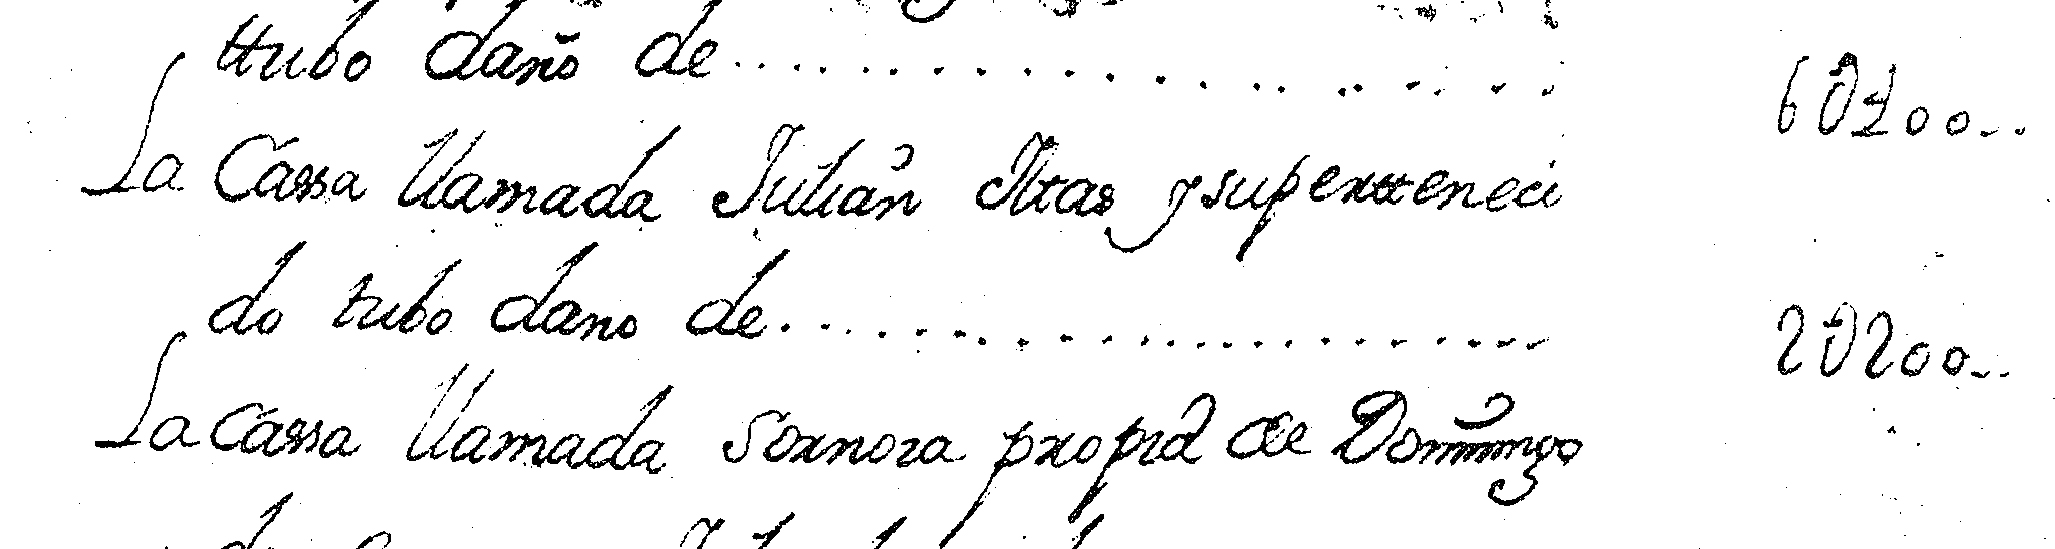 ttubo daño de.................... 6U200..
La Cassa llamada Julián Iltas y supertteneci
do tubo dano de.................... 2U200..
La Cassa llamada Sornoza propia de Domingo